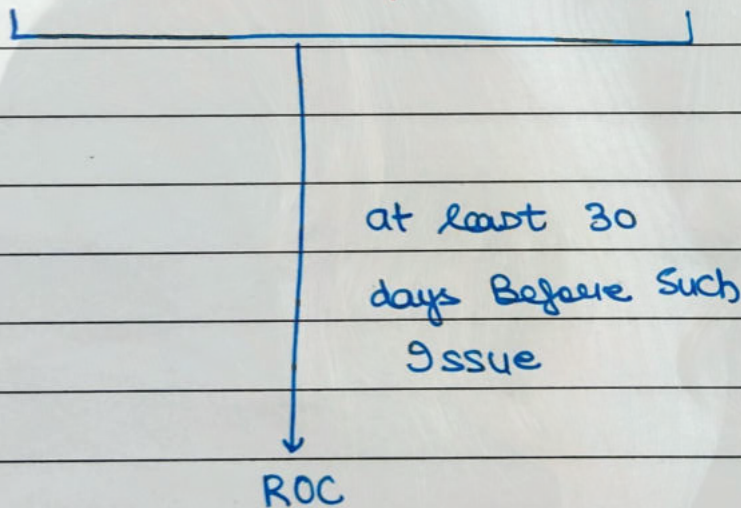 at least 30
days Before Such
Issue
ROC